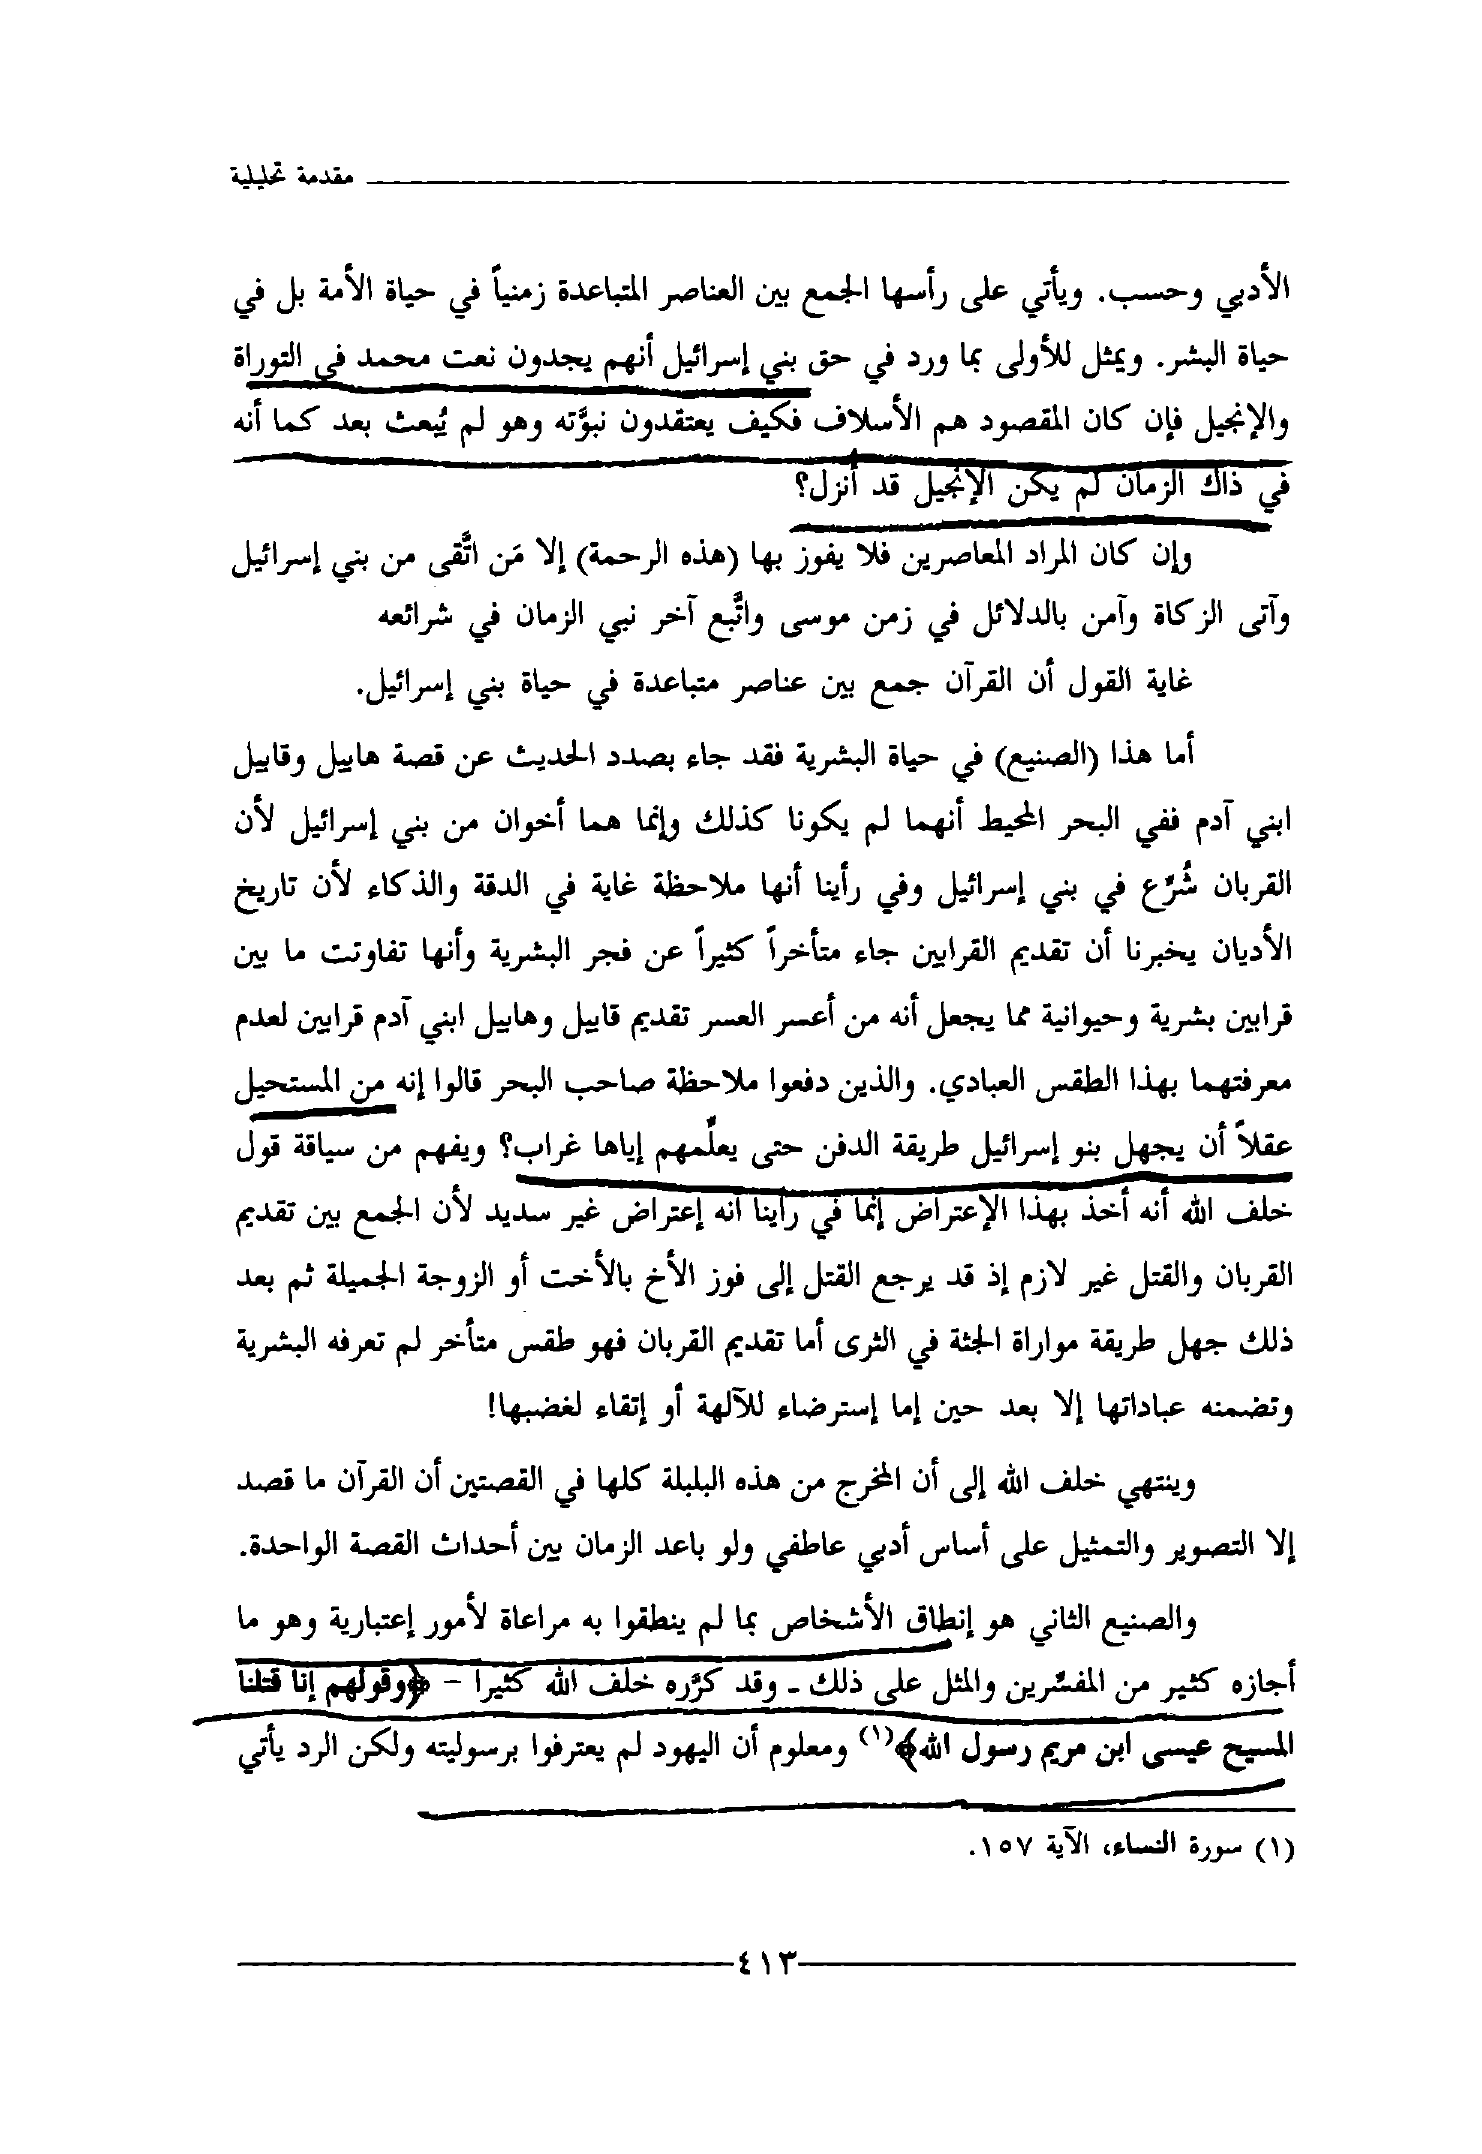 مقدمة تحليلية
الأدبي وحسب. ويأتي على رأسها الجمع بين العناصر المتباعدة زمنياً في حياة الأمة بل في
حياة البشر. ويمثل للأولى بما ورد في حق بني إسرائيل أنهم يجدون نعت محمد في التوراة
والإنجيل فإن كان المقصود هم الأسلاف فكيف يعتقدون نبوَّته وهو لم يُبعث بعد كما أنه
في ذاك الزمان لم يكن الإنجيل قد أنزل؟
وإن كان المراد المعاصرين فلا يفوز بها (هذه الرحمة) إلا مَن اتَّقى من بني إسرائيل
وآتى الزكاة وآمن بالدلائل في زمن موسى واتَّبع آخر نبي الزمان في شرائعه
غاية القول أن القرآن جمع بين عناصر متباعدة في حياة بني إسرائيل.
أما هذا (الصنيع) في حياة البشرية فقد جاء بصدد الحديث عن قصة هابيل وقابيل
ابني آدم ففي البحر المحيط أنهما لم يكونا كذلك وإنما هما أخوان من بني إسرائيل لأن
القربان شُرِّع في بني إسرائيل وفي رأينا أنها ملاحظة غاية في الدقة والذكاء لأن تاريخ
الأديان يخبرنا أن تقديم القرابين جاء متأخراً كثيراً عن فجر البشرية وأنها تفاوتت ما بين
قرابين بشرية وحيوانية مما يجعل أنه من أعسر العسر تقديم قابيل وهابيل ابني آدم قرابين لعدم
معرفتهما بهذا الطقس العبادي. والذين دفعوا ملاحظة صاحب البحر قالوا إنه من المستحيل
عقلاً أن يجهل بنو إسرائيل طريقة الدفن حتى يعلِّمهم إياها غراب؟ ويفهم من سياقة قول
خلف الله أنه أخذ بهذا الإعتراض إنما في رأينا أنه إعتراض غير سديد لأن الجمع بين تقديم
القربان والقتل غير لازم إذ قد يرجع القتل إلى فوز الأخ بالأخت أو الزوجة الجميلة ثم بعد
ذلك جهل طريقة مواراة الجثة في الثرى أما تقديم القربان فهو طقس متأخر لم تعرفه البشرية
وتضمنه عباداتها إلا بعد حين إما إسترضاء للآلهة أو إتقاء لغضبها!
وينتهي خلف الله إلى أن المخرج من هذه البلبلة كلها في القصتين أن القرآن ما قصد
إلا التصوير والتمثيل على أساس أدبي عاطفي ولو باعد الزمان بين أحداث القصة الواحدة.
والصنيع الثاني هو إنطاق الأشخاص بما لم ينطقوا به مراعاة لأمور إعتبارية وهو ما
أجازه كثير من المفسِّرين والمثل على ذلك ـ وقد كرَّره خلف الله كثيرا – ﴿وقولهم إنا قتلنا
المسيح عيسى ابن مريم رسول الله﴾(١) ومعلوم أن اليهود لم يعترفوا برسوليته ولكن الرد يأتي
(١) سورة النساء، الآية ١٥٧.
٤١٣